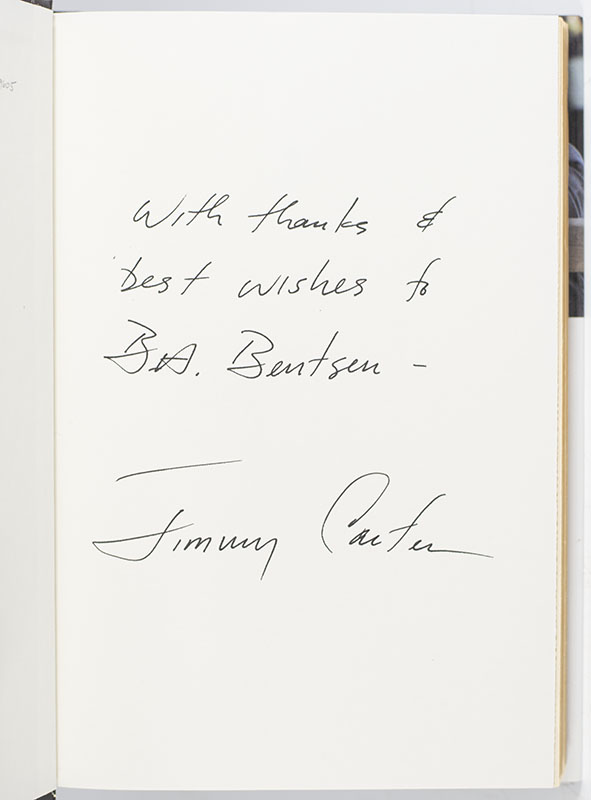 With thanks &
best wishes to
B.A. Bentsen -
Jimmy Carter